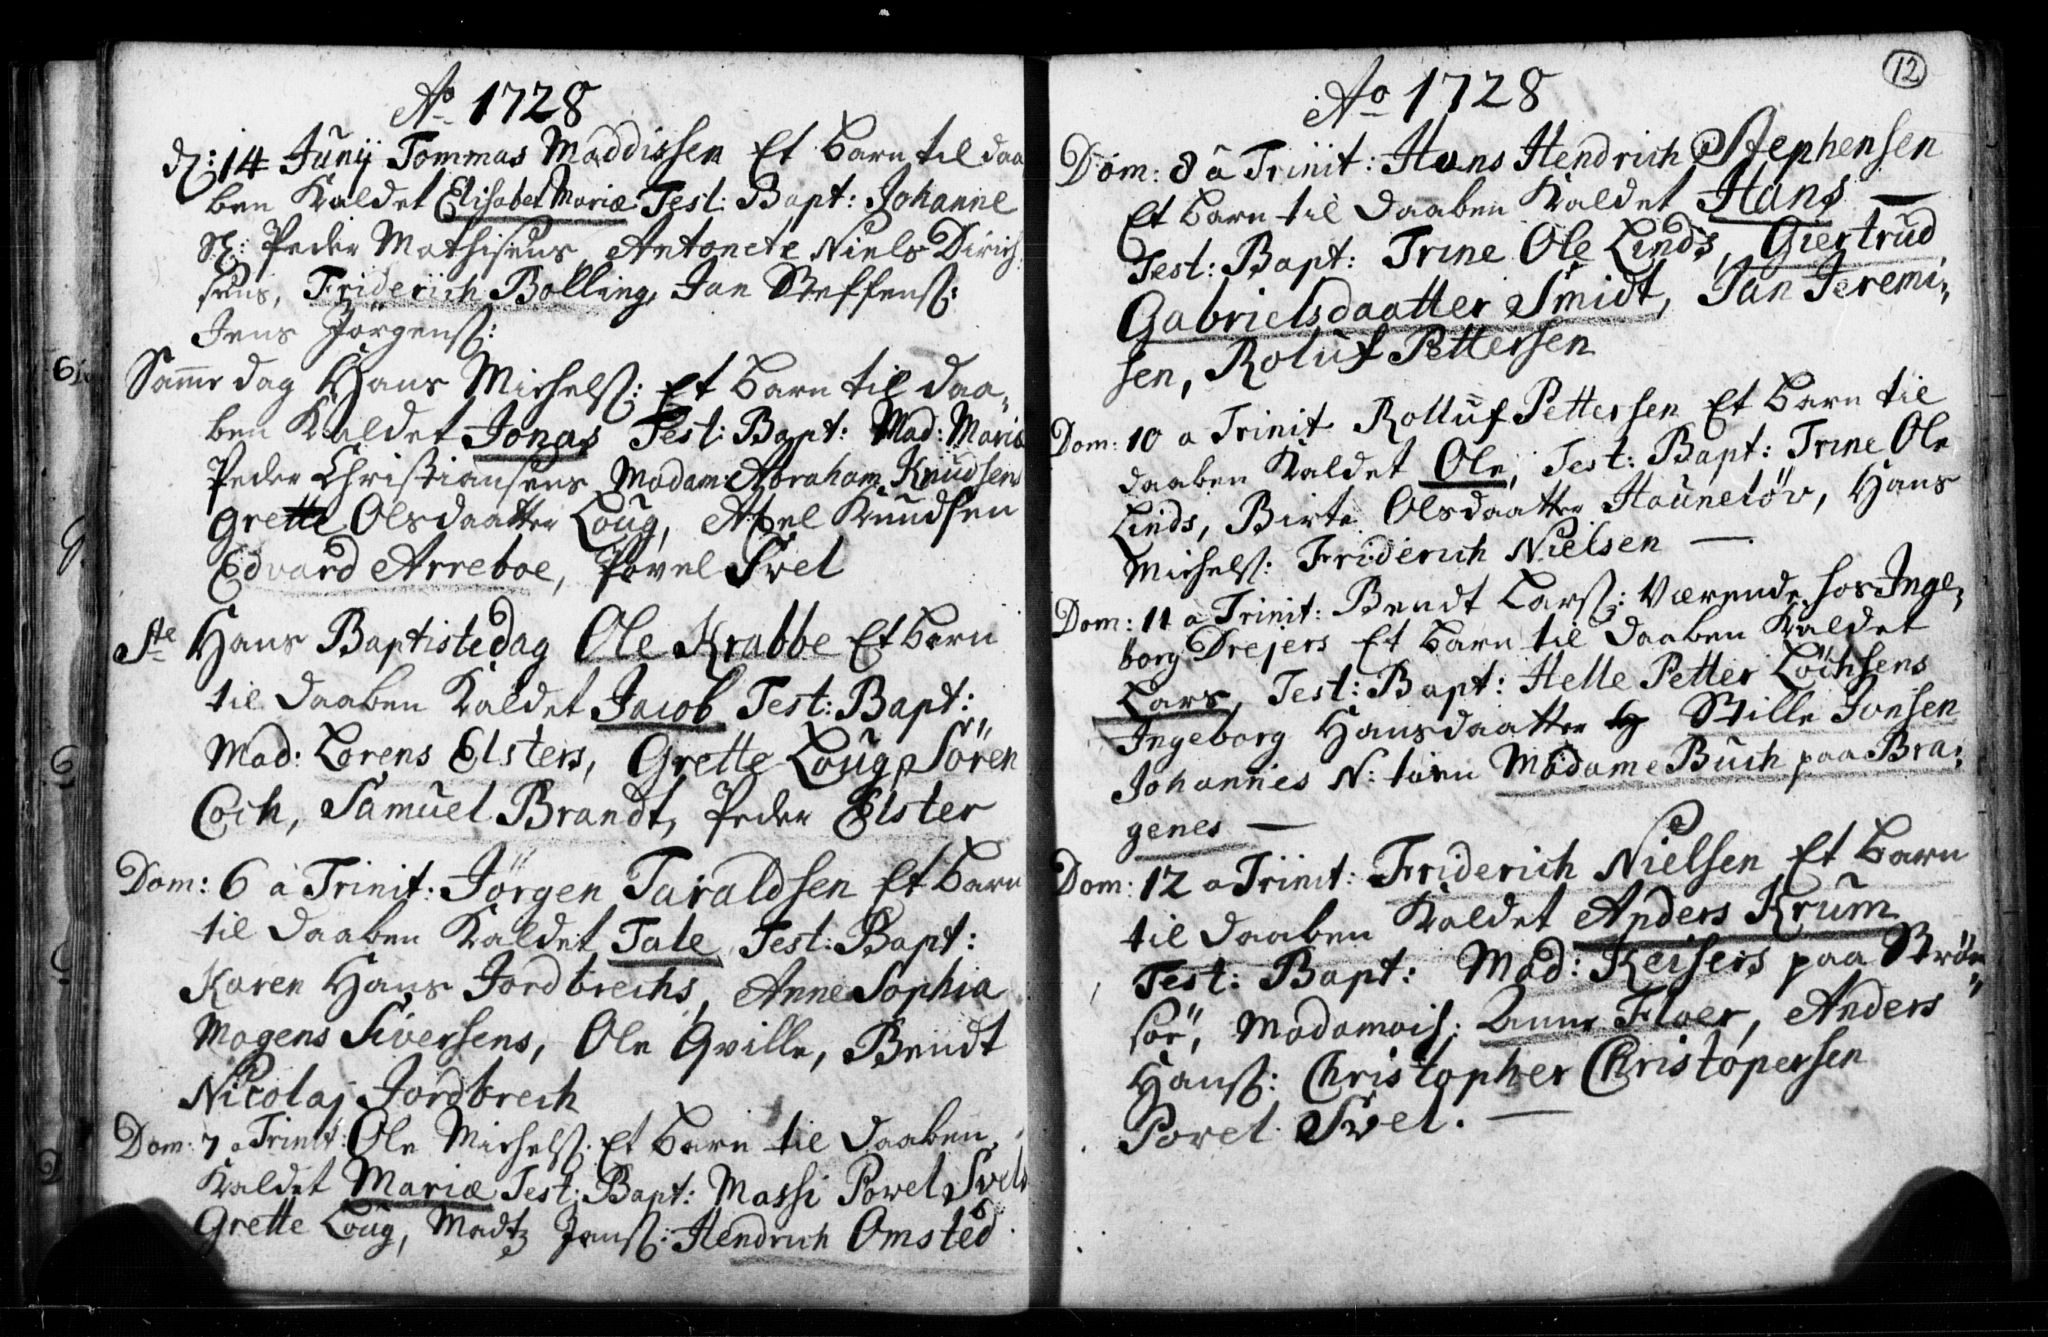 Ao 1728
d: 14 Junij Tommas Maddissen Et barn til daa
ben Kaldet Elisabet Mariæ Test: Bapt: Johanne
Sl: Peder Mathisens, Antonete Niels Dirich
sens, Friderich Bolling, Jan Steffens:
Jens Jörgens:
Samme dag Hans Michels: Et barn til daa,
ben Kaldet Jonas Test: Bapt: Mad: Mariæ
Peder Christiansens Madam: Abraham Knudsens
Grette Olsdaatter Loug, Abel Knudsen
Edvard Arreboe, Povel Svel
Ste Hans Baptistedag Ole Krabbe Et barn
til daaben Kaldet Jacob Test: Bapt:
Mad: Lorens Elsters, Grette Loug, Sören
Coch, Samuel Brandt, Peder Elster
Dom: 6 a Trinit: Jörgen Taraldsen Et barn
til daaben Kaldet Tale Test: Bapt:
Karen Hans Jordbrechs, Anne Sophia
Mogens Siversens, Ole Qville, Bendt
Nicolaj Jordbrech
Dom: 7 a Trinit: Ole Michels: Et barn til daaben
Kaldet Mariæ Test: Bapt: Massi Povel Svels
Grette Loug, Madtz Jens: Hendrich Omsted
12
Ao 1728
Dom: 8 a Trinit: Hans Hendrich Stephensen
Et barn til daaben Kaldet Hans
Test: Bapt: Trine Ole Linds, Giertrud
Gabrielsdaatter Smidt, Jan Jeremi,
sen, Roluf Pettersen
Dom: 10 a Trinit Rolluf Pettersen Et barn til
daaben Kaldet Ole, Test: Bapt: Trine Ole
Linds, Birte Olsdaatter Haunelöv, Hans
Michels: Friderich Nielsen
Dom: 11 a Trinit: Bendt Lars: Værende hos Inge,
borg Drejers Et barn til daaben Kaldet
Lars, Test: Bapt: Helle Petter Löchsens
Ingeborg Hansdaatter Stille Jonsen
Johannes N: Madame Buch paa Bra,
genes
Dom: 12 a Trinit: Friderich Nielsen Et barn
til daaben Kaldet Anders Krum
Test: Bapt: Mad: Keisers paa Ström
söe, Madamois: Anne Floer, Anders
Hans: Christopher Christopersen
Povel Svel.